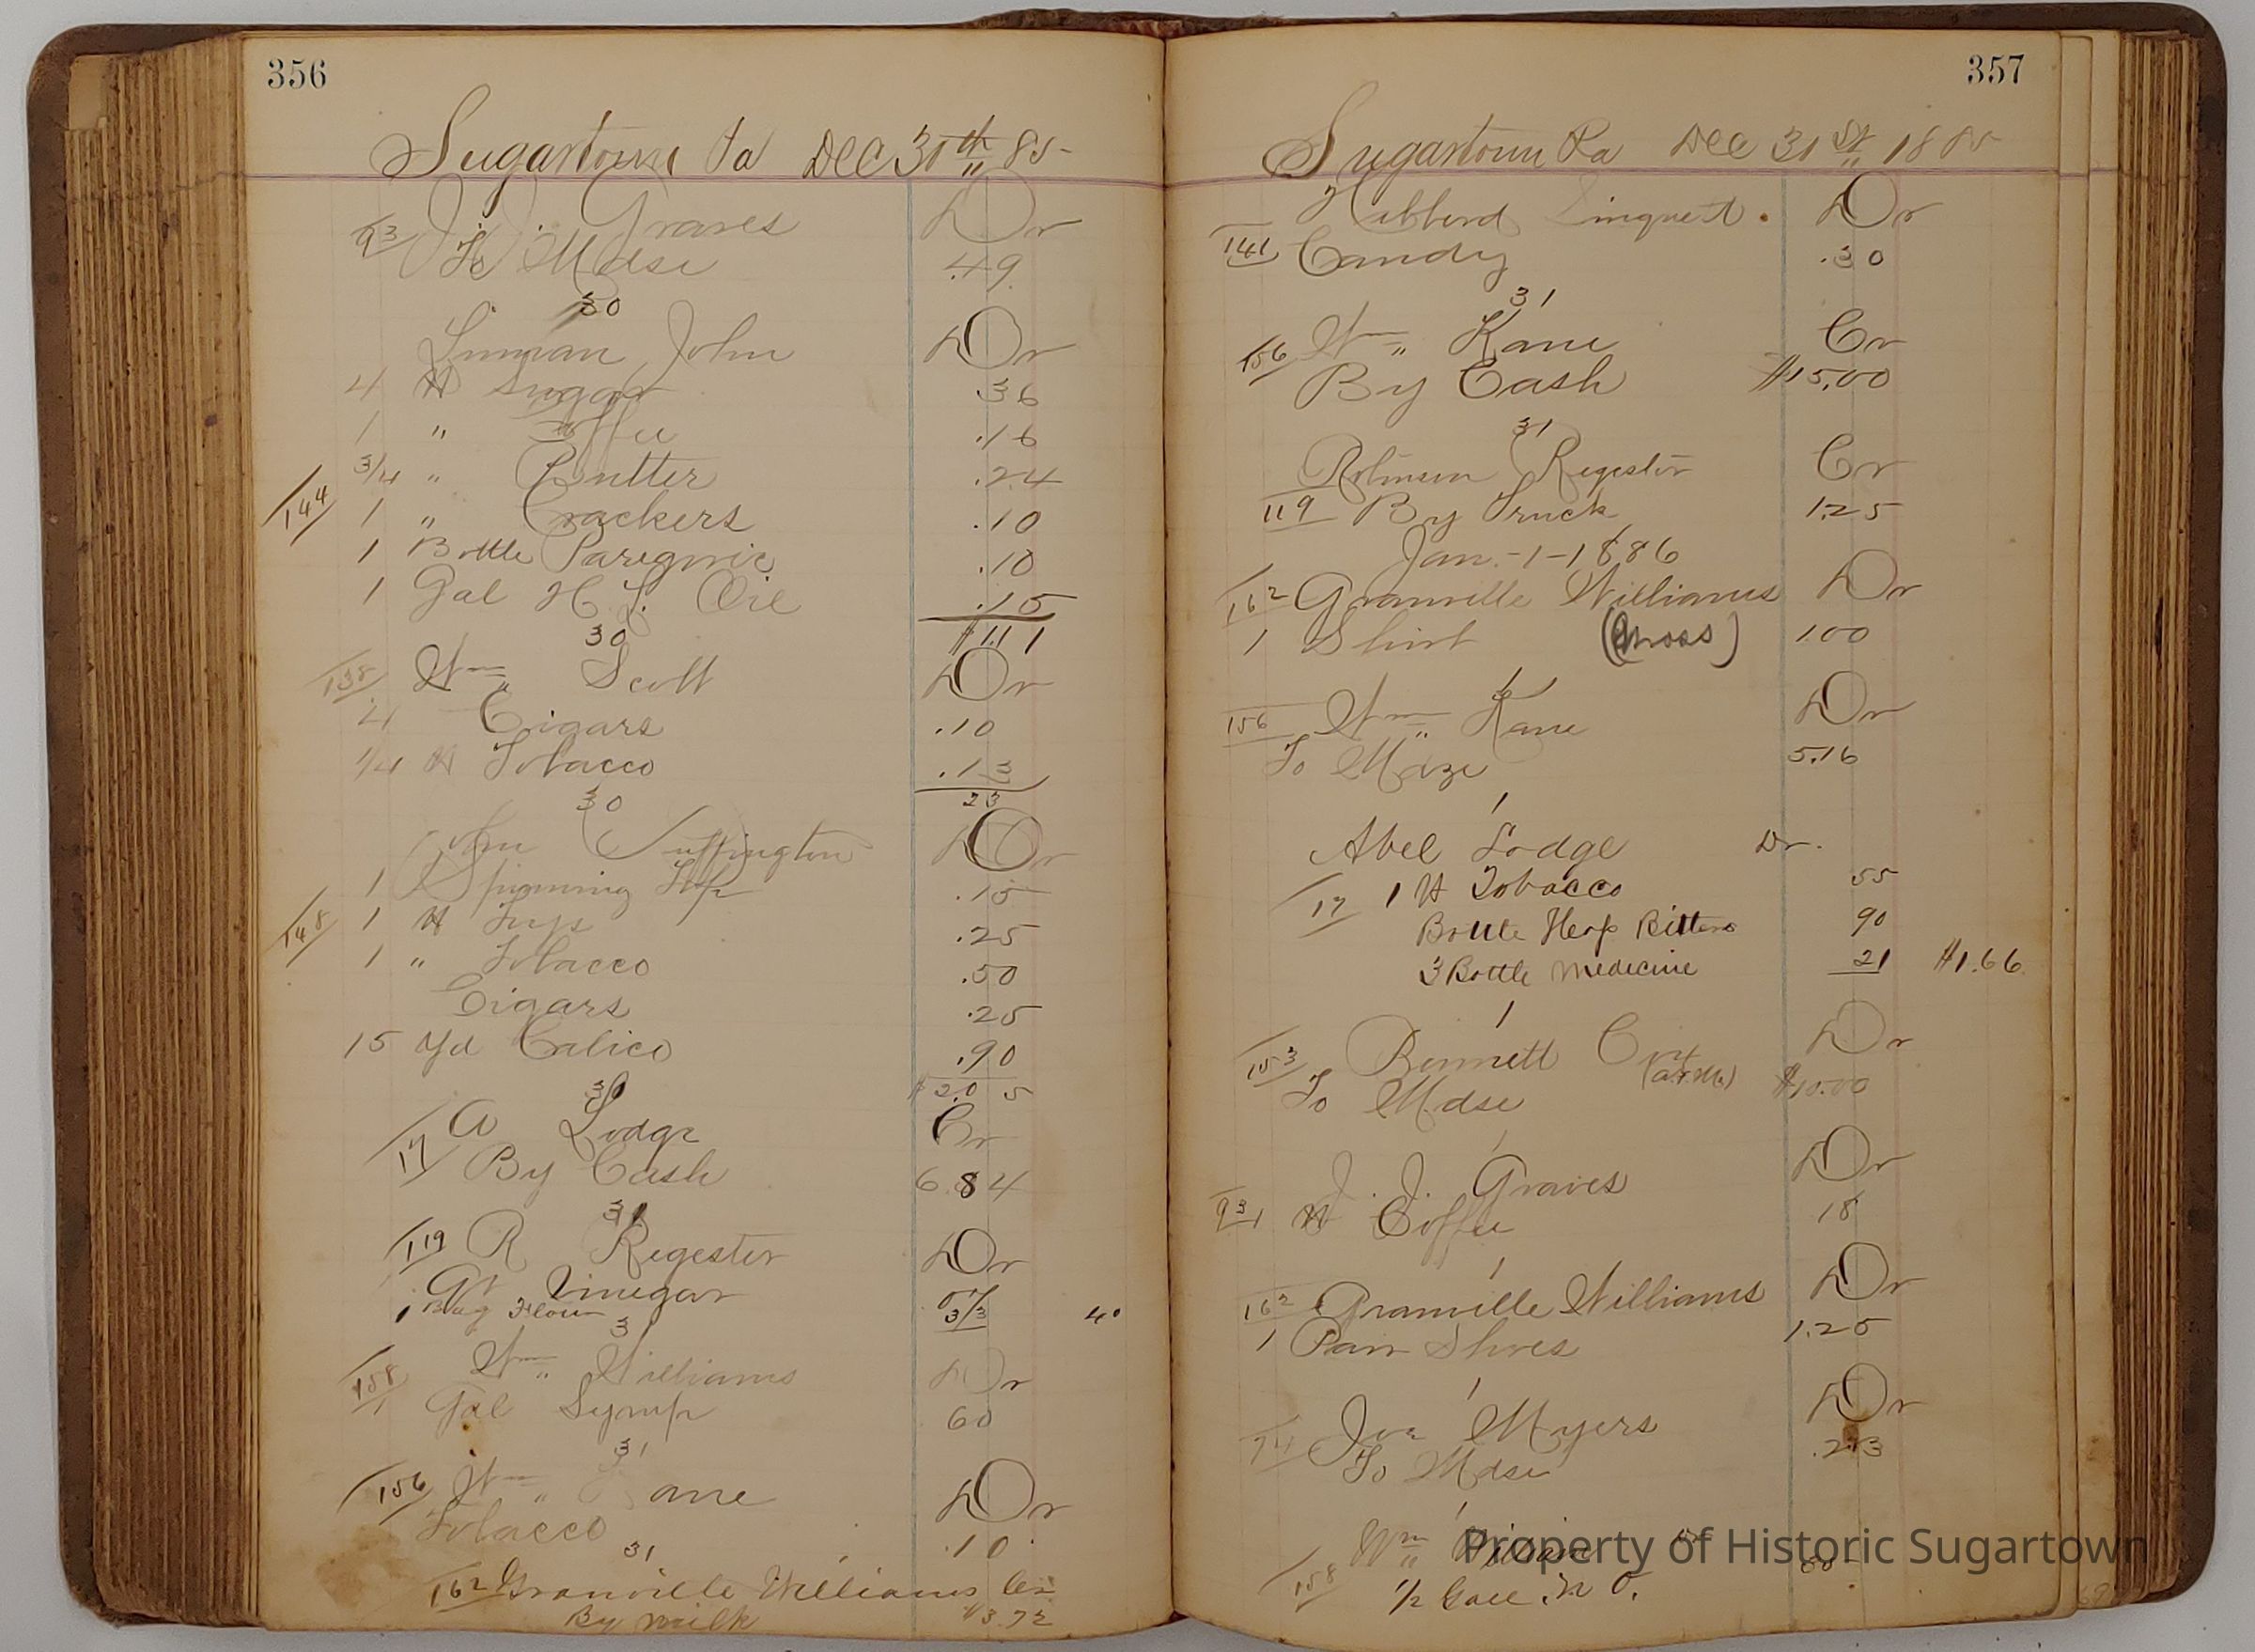 356
Sugartown Pa Dec 30th 85
93 J. J. Graves Dr
To Mdse .49
30
Inman John Dr
4 # Sugar .36
1 " Coffee .16
3/4 " Butter .24
144 1 " Crackers .10
1 Bottle Paregoric .10
1 Gal H. L. Oil .15
$1.11
30
138 Wm Scott Dr
2 Cigars .10
1/4 # Tobacco .13
23
30
John Buffington Dr
1 Spinning Top .15
148 1 # Figs .25
1 " Tobacco .50
Cigars .25
15 Yd Calico .90
$2.05
30
17 A Lodge Cr
By Cash 6.84
31
119 R Regester Dr
Qr Vinegar
1 Bag Flour 40
31
158 Wm Williams Dr
1 Gal Syrup 60
31
156 Wm Kane Dr
Tobacco .10
31
162 Granville Williams Cr
By milk $3.72
357
Sugartown Pa Dec 31st 1885
Hibberd Dr
141 Candy .30
31
156 Wm Kane Cr
By Cash $15.00
31
Robinson Regester Cr
119 By Truck 1.25
Jan.-1-1886
162 Granville Williams Dr
1 Shirt 100
1
156 Wm Kane Dr
To Mdze 5.16
1
Abel Lodge Dr.
17 1 # Tobacco 55
Bottle Hop Bitters 90
3 Bottle medecine 21 $1.66
1
153 Bennett Dr
To Mdse $10.00
1
J. J. Graves Dr
93 1 # Coffee 18
1
162 Granville Williams Dr
1 Pair Shoes 1.25
1
74 Myers Dr
To Mdse .23
1
158 Wm William Dr
1/2 Gall. N O.
Property of Historic Sugartown